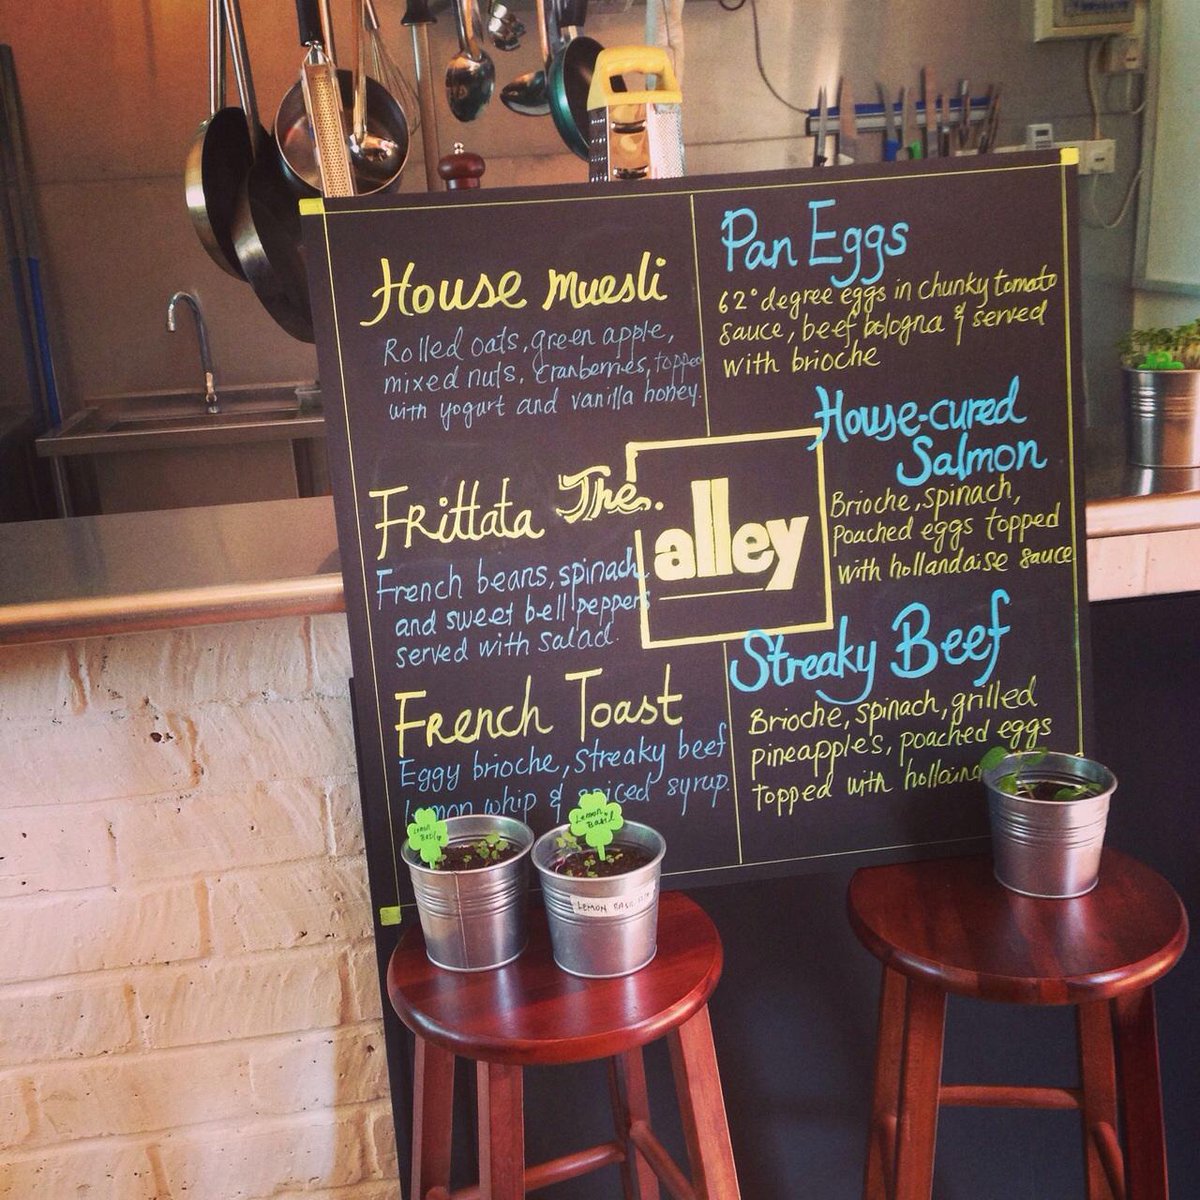 House muesli
Rolled oats, green apple,
mixed nuts, cranberries, topped
with yogurt and vanilla honey.
Frittata
French beans, spinach
and sweet bell peppers
served with salad.
French Toast
Eggy brioche, Streaky beef
Lemon whip & spiced syrup.
The.
alley
Pan Eggs
62° degree eggs in chunky tomato
sauce, beef bologna & served
with brioche
House-cured
Salmon
Brioche, spinach,
Poached eggs topped
with hollandaise sauce
Streaky Beef
Brioche, spinach, grilled
pineapples, poached eggs
topped with
Lemon
Basil
Lemon
Basil
LEMON BASIL